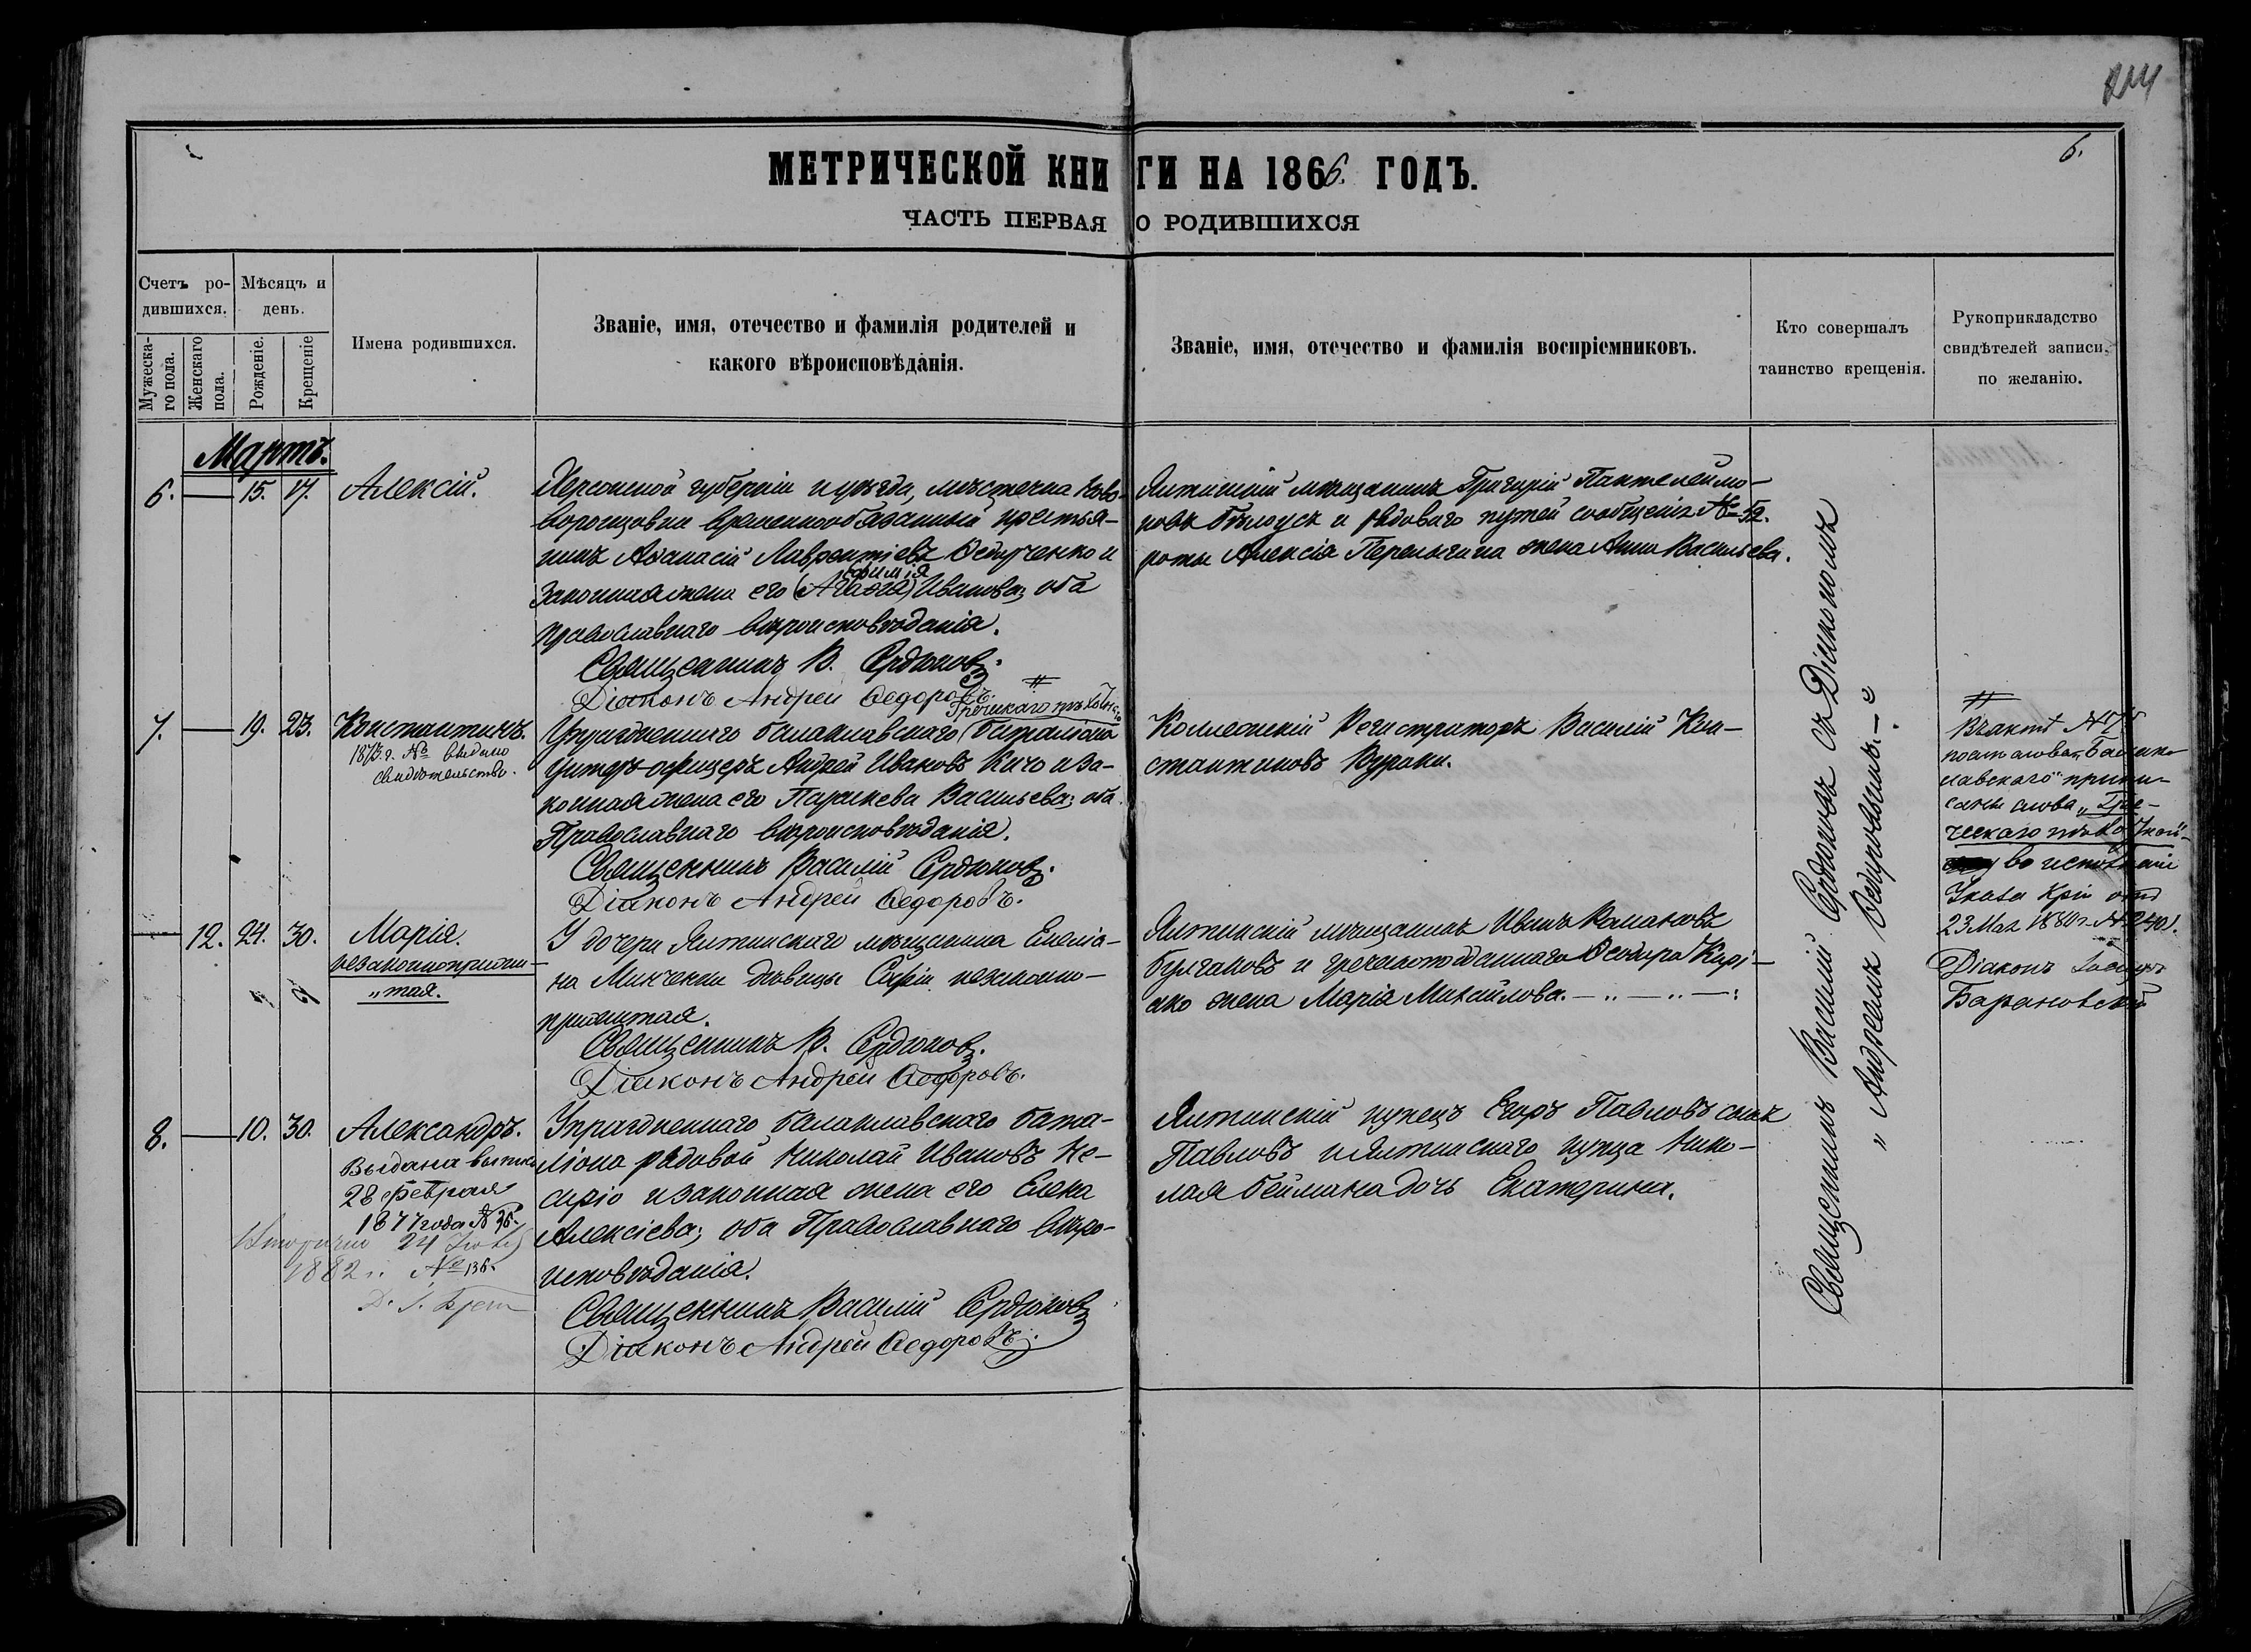 214
6.
МЕТРИЧЕСКОЙ КНИГИ НА 1866. ГОДЪ.
ЧАСТЬ ПЕРВАЯ О РОДИВШИХСЯ
Счетъ ро-
дившихся.
Мужеска-
го пола.
Женскаго
пола.
Мѣсяцъ и
день.
Рожденіе.
Крещеніе
Имена родившихся.
Званіе, имя, отечество и фамилія родителей и
какого вѣроисповѣданія.
Званіе, имя, отечество и фамилія воспріемниковъ.
Кто совершалъ
таинство крещенія.
Рукоприкладство
свидѣтелей записи,
по желанію.
Мартъ.
6. — 15. 17. Алексій.
Херсонской губерніи и уѣзда, мѣстечка Ново-
воронцовки временнообязанный крестья-
нинъ Аѳанасій Лаврентіевъ Ѳедурченко и
законная жена его (Агаѳія) Иванова; оба
православнаго вѣроисповѣданія.
Священникъ В. Сердюковъ.
Діаконъ Андрей Ѳедоровъ.
Ялтинскій мѣщанинъ Григорій Пантелеймо-
новъ Бѣлоусъ и рядоваго путей сообщенія № 52.
роты Алексія Перелыгина жена Анна Васильева.
7. — 19. 23. Константинъ.
1873 г. № выдано
свидѣтельство.
#
Греческаго пѣхотнаго
Упраздненнаго балаклавскаго баталіона
Унтеръ-офицеръ Андрей Ивановъ Кичо и за-
конная жена его Параскева Васильева; оба
Православнаго вѣроисповѣданія.
Священникъ Василій Сердюковъ.
Діаконъ Андрей Ѳедоровъ.
Коллежскій Регистраторъ Василій Кон-
стантиновъ Кураки.
#
Въ актѣ № 7й
Балакл-
лавскаго" припи-
саны слова „Гре-
ческаго
во исполненіе
Указа
23 Мая 1880 г. № 2401.
Діаконъ
Барановскій
— 12. 24. 30. Марія.
незаконноприжи-
„тая.
У дочери Ялтинскаго мѣщанина Емеліа-
на Минченки дѣвицы Софіи незаконно-
прижитая.
Священникъ В. Сердюковъ.
Діаконъ Андрей Ѳедоровъ.
Ялтинскій мѣщанинъ Иванъ Романовъ
Булгаковъ и грекоподданнаго Ѳеодора Киріа-
ако жена Марія Михайлова. — „ — „ — :
8. — 10. 30. Александръ.
Выдана выпись
28 Февраля
1877 года № 36.
Вторично 24
1882 г. № 136.
Упраздненнаго балаклавскаго бата-
ліона рядовой Николай Ивановъ Не-
сиріо и законная жена его Елена
Алексіева; оба Православнаго вѣро-
исповѣданія.
Священникъ Василій Сердюковъ
Діаконъ Андрей Ѳедоровъ.
Ялтинскій купецъ Егоръ Павловъ сынъ
Павловъ и Ялтинскаго купца Нико-
лая Геймана дочь Екатерина.
Священникъ Василій Сердюковъ съ Діакономъ
„ Андреемъ Ѳедоровымъ. —